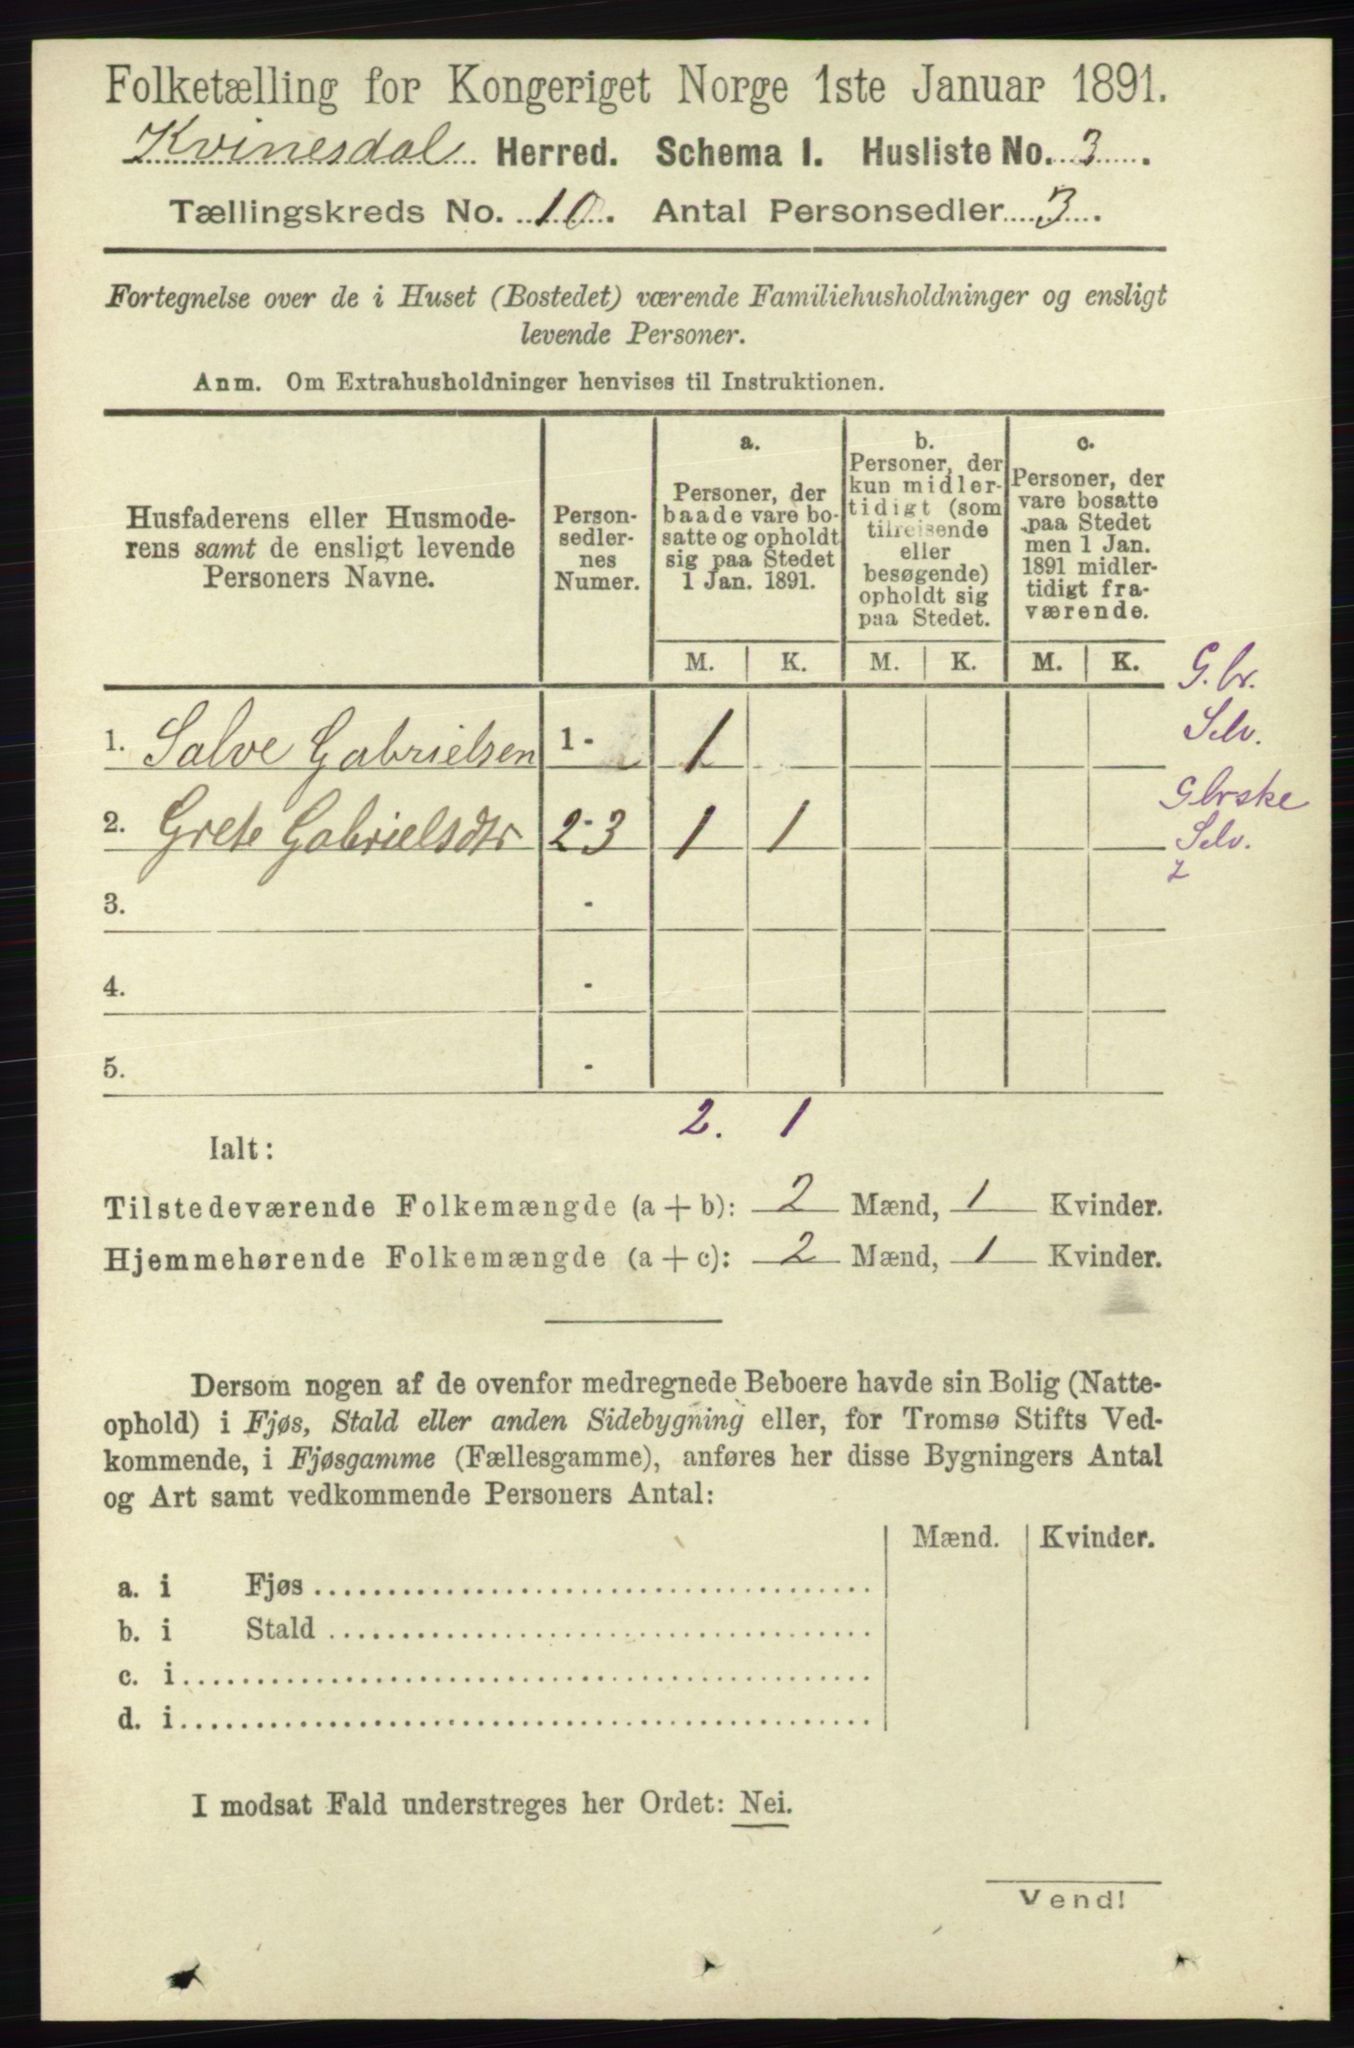 Folketælling for Kongeriget Norge 1ste Januar 1891.
Kvinesdal Herred. Schema I. Husliste No. 3.
Tællingskreds No. 10. Antal Personsedler 3.
Fortegnelse over de i Huset (Bostedet) værende Familiehusholdninger og ensligt
levende Personer.
Anm. Om Extrahusholdninger henvises til Instruktionen.
Husfaderens eller Husmode-
rens samt de ensligt levende
Personers Navne.
Person-
sedler-
nes
Numer.
a.
Personer, der
baade vare bo-
satte og opholdt
sig paa Stedet
1 Jan. 1891.
b.
Personer, der
kun midler-
tidigt (som
tilreisende
eller
besøgende)
opholdt sig
paa Stedet.
c.
Personer, der
vare bosatte
paa Stedet
men 1 Jan.
1891 midler-
tidigt fra-
værende.
M. K. M. K. M. K.
G.br.
Selv.
1. Salve Gabrielsen 1 - 1
Gbrske
2. Grete Gabrielsdtr 2-3 1 1 Selv.
z
3. -
4. -
5. -
2. 1
Ialt:
Tilstedeværende Folkemængde (a + b): 2 Mænd, 1 Kvinder.
Hjemmehørende Folkemængde (a + c): 2 Mænd, 1 Kvinder.
Dersom nogen af de ovenfor medregnede Beboere havde sin Bolig (Natte-
ophold) i Fjøs, Stald eller anden Sidebygning eller, for Tromsø Stifts Ved-
kommende, i Fjøsgamme (Fællesgamme), anføres her disse Bygningers Antal
og Art samt vedkommende Personers Antal:
Mænd. Kvinder.
a. i Fjøs
b. i Stald
c. i
d. i
I modsat Fald understreges her Ordet: Nei.
Vend!